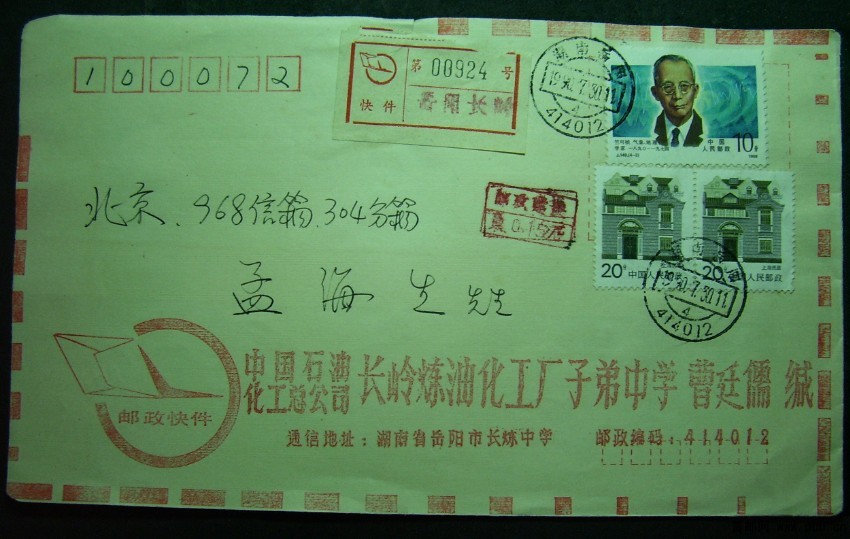 100072
第 00924 号
快件 岳阳长岭
湖南岳阳
1990.7.30.11
4
414012
竺可桢 气象、地理
学家 一八九〇—一九七四
10分
中国
人民邮政
1988
邮政
0.15元
北京、968信箱、304分箱
孟海生先生
20分 中国人民邮政
上海民居
20分 中国人民邮政
1990.7.30.11
4
414012
邮政快件
中国石油
化工总公司 长岭炼油化工厂子弟中学 曹廷儒 缄
通信地址：湖南省岳阳市长炼中学 邮政编码：414012